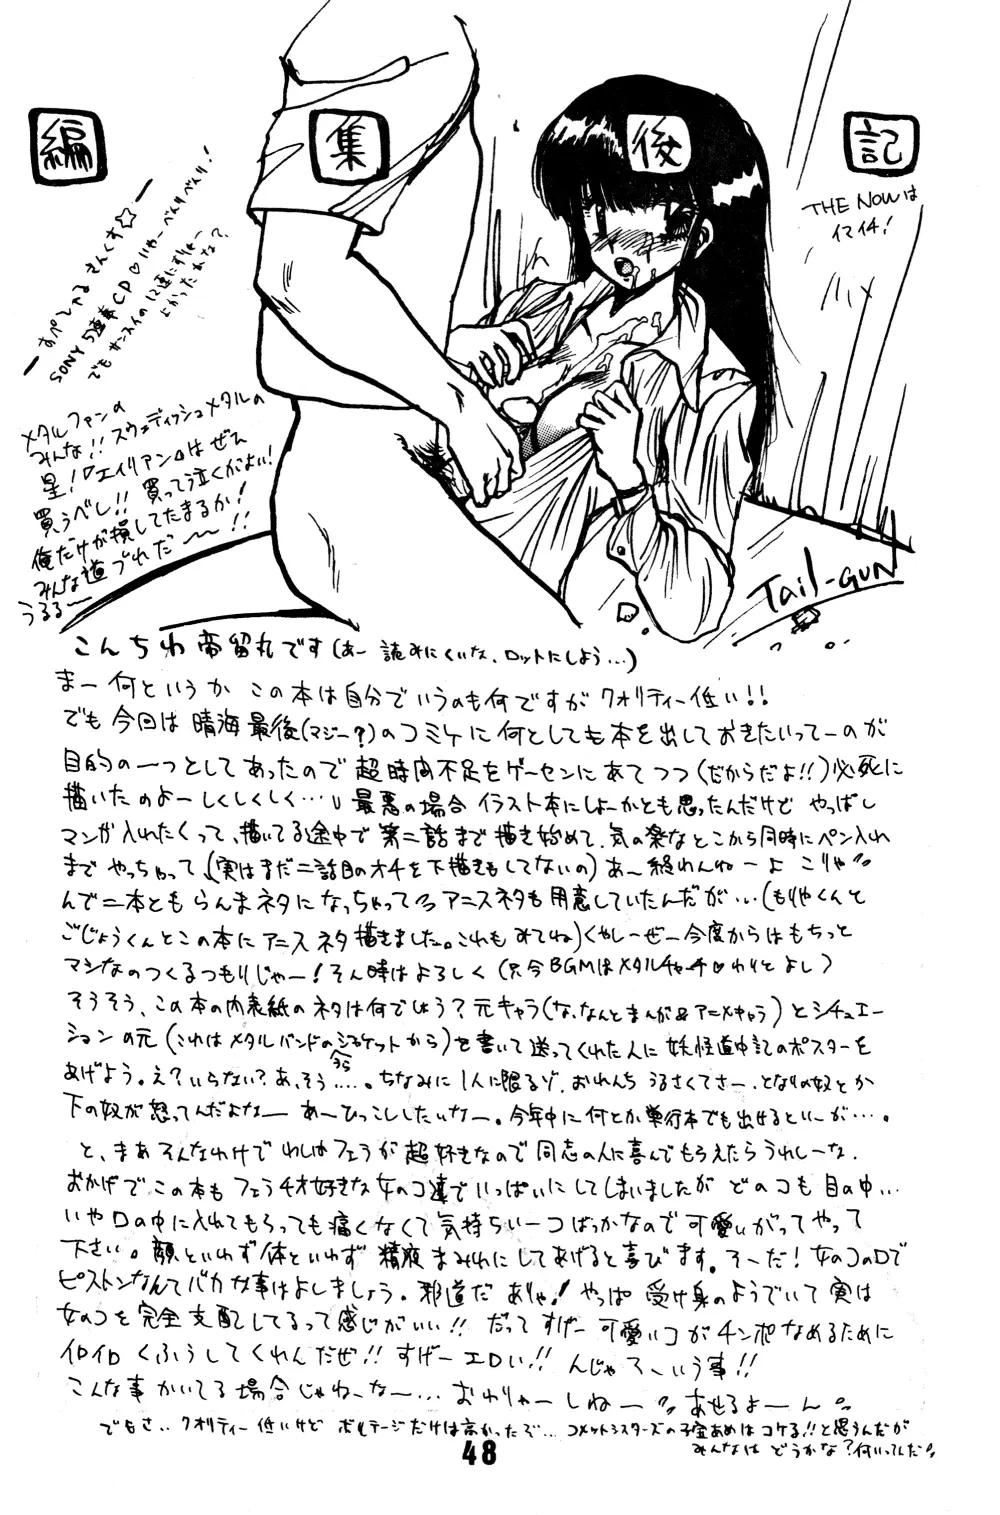 編集後記
THE NOWは
イマイチ!
― すぺしゃる さんくす☆ ―
SONY 5連奏CD♡いやーべんりべんり!
でも サンスイの12連にすりゃー
よかったかな?
メタルファンの
みんな!! スウェディッシュメタルの
星!『エイリアン』はぜひ
買うべし!! 買って泣くがよい!
俺だけが損してたまるか!
みんな道づれだ〜〜!!
うるる〜
Tail-GUN
こんちわ 帝留丸です(あー 読みにくいな、ロットにしよう…)
まー何というか この本は自分でいうのも何ですが クオリティー低い!!
でも今回は 晴海最後(マジー?)のコミケに何としても本を出しておきたいってーのが
目的の一つとしてあったので 超時間不足をゲーセンにあてつつ(だからだよ!!)必死に
描いたのよーしくしくしく… 最悪の場合 イラスト本にしよーかとも思ったんだけど やっぱし
マンガ入れたくって、描いてる途中で 第二話まで描き始めて、気の楽なとこから同時にペン入れ
まで やっちゃって、(実はまだ二話目のオチを下描きもしてないの)あ〜終わんねーよ こりゃ
んで二本とも らんまネタになっちゃって アニスネタも用意していたんだが…(もりやくんと
ごじょうくんとこの本にアニスネタ描きました。これもみてね)くやしーぜー 今度からはもちっと
マシなのつくるつもりじゃー!そん時はよろしく(只今BGMはメタルチャーチ♡わりとよし)
そうそう、この本の内表紙のネタは何でしょう?元キャラ(な、なんとまんが&アニメキャラ)とシチュエー
ションの元(これはメタルバンドのジャケットから)を書いて送ってくれた人に 妖怪道中記のポスターを
あげよう。え?いらない?あ、そう……。ちなみに1人に限るゾ。おれんち うるさくてさー、となりの奴とか
下の奴が 怒ってんだよなー あーひっこししたいなー。今年中に何とか単行本でも出せるといーが…。
と、まあ そんなわけで わしはフェラが 超好きなので 同志の人に喜んでもらえたらうれしーな。
おかげで この本も フェラチオ好きな女のコ達で いっぱいにしてしまいましたが どのコも 目の中…
いや口の中に入れてもらっても痛くなくて気持ちいーコばっかなので可愛いがってやって
下さい。顔といわず 体といわず 精液まみれにしてあげると喜びます。そーだ!女のコの口で
ピストンなんてバカな事はよしましょう。邪道だ ありゃ! やっぱ 受け身のようでいて 実は
女のコを完全支配してるって感じがいい!! だって すげー 可愛いコが チンポなめるために
イロイロ くふうしてくれんだぜ!! すげー エロい!! んじゃて、いう事!!
こんな事 かいてる 場合じゃねーなー… おわりゃーしねー あせるよーん
でもさ‥クオリティー低いけど ボルテージだけは高かったぞ… コメットシスターズの子宝あめはコケる!!と思うんだが
みんなは どうかな?何いってんだ
48